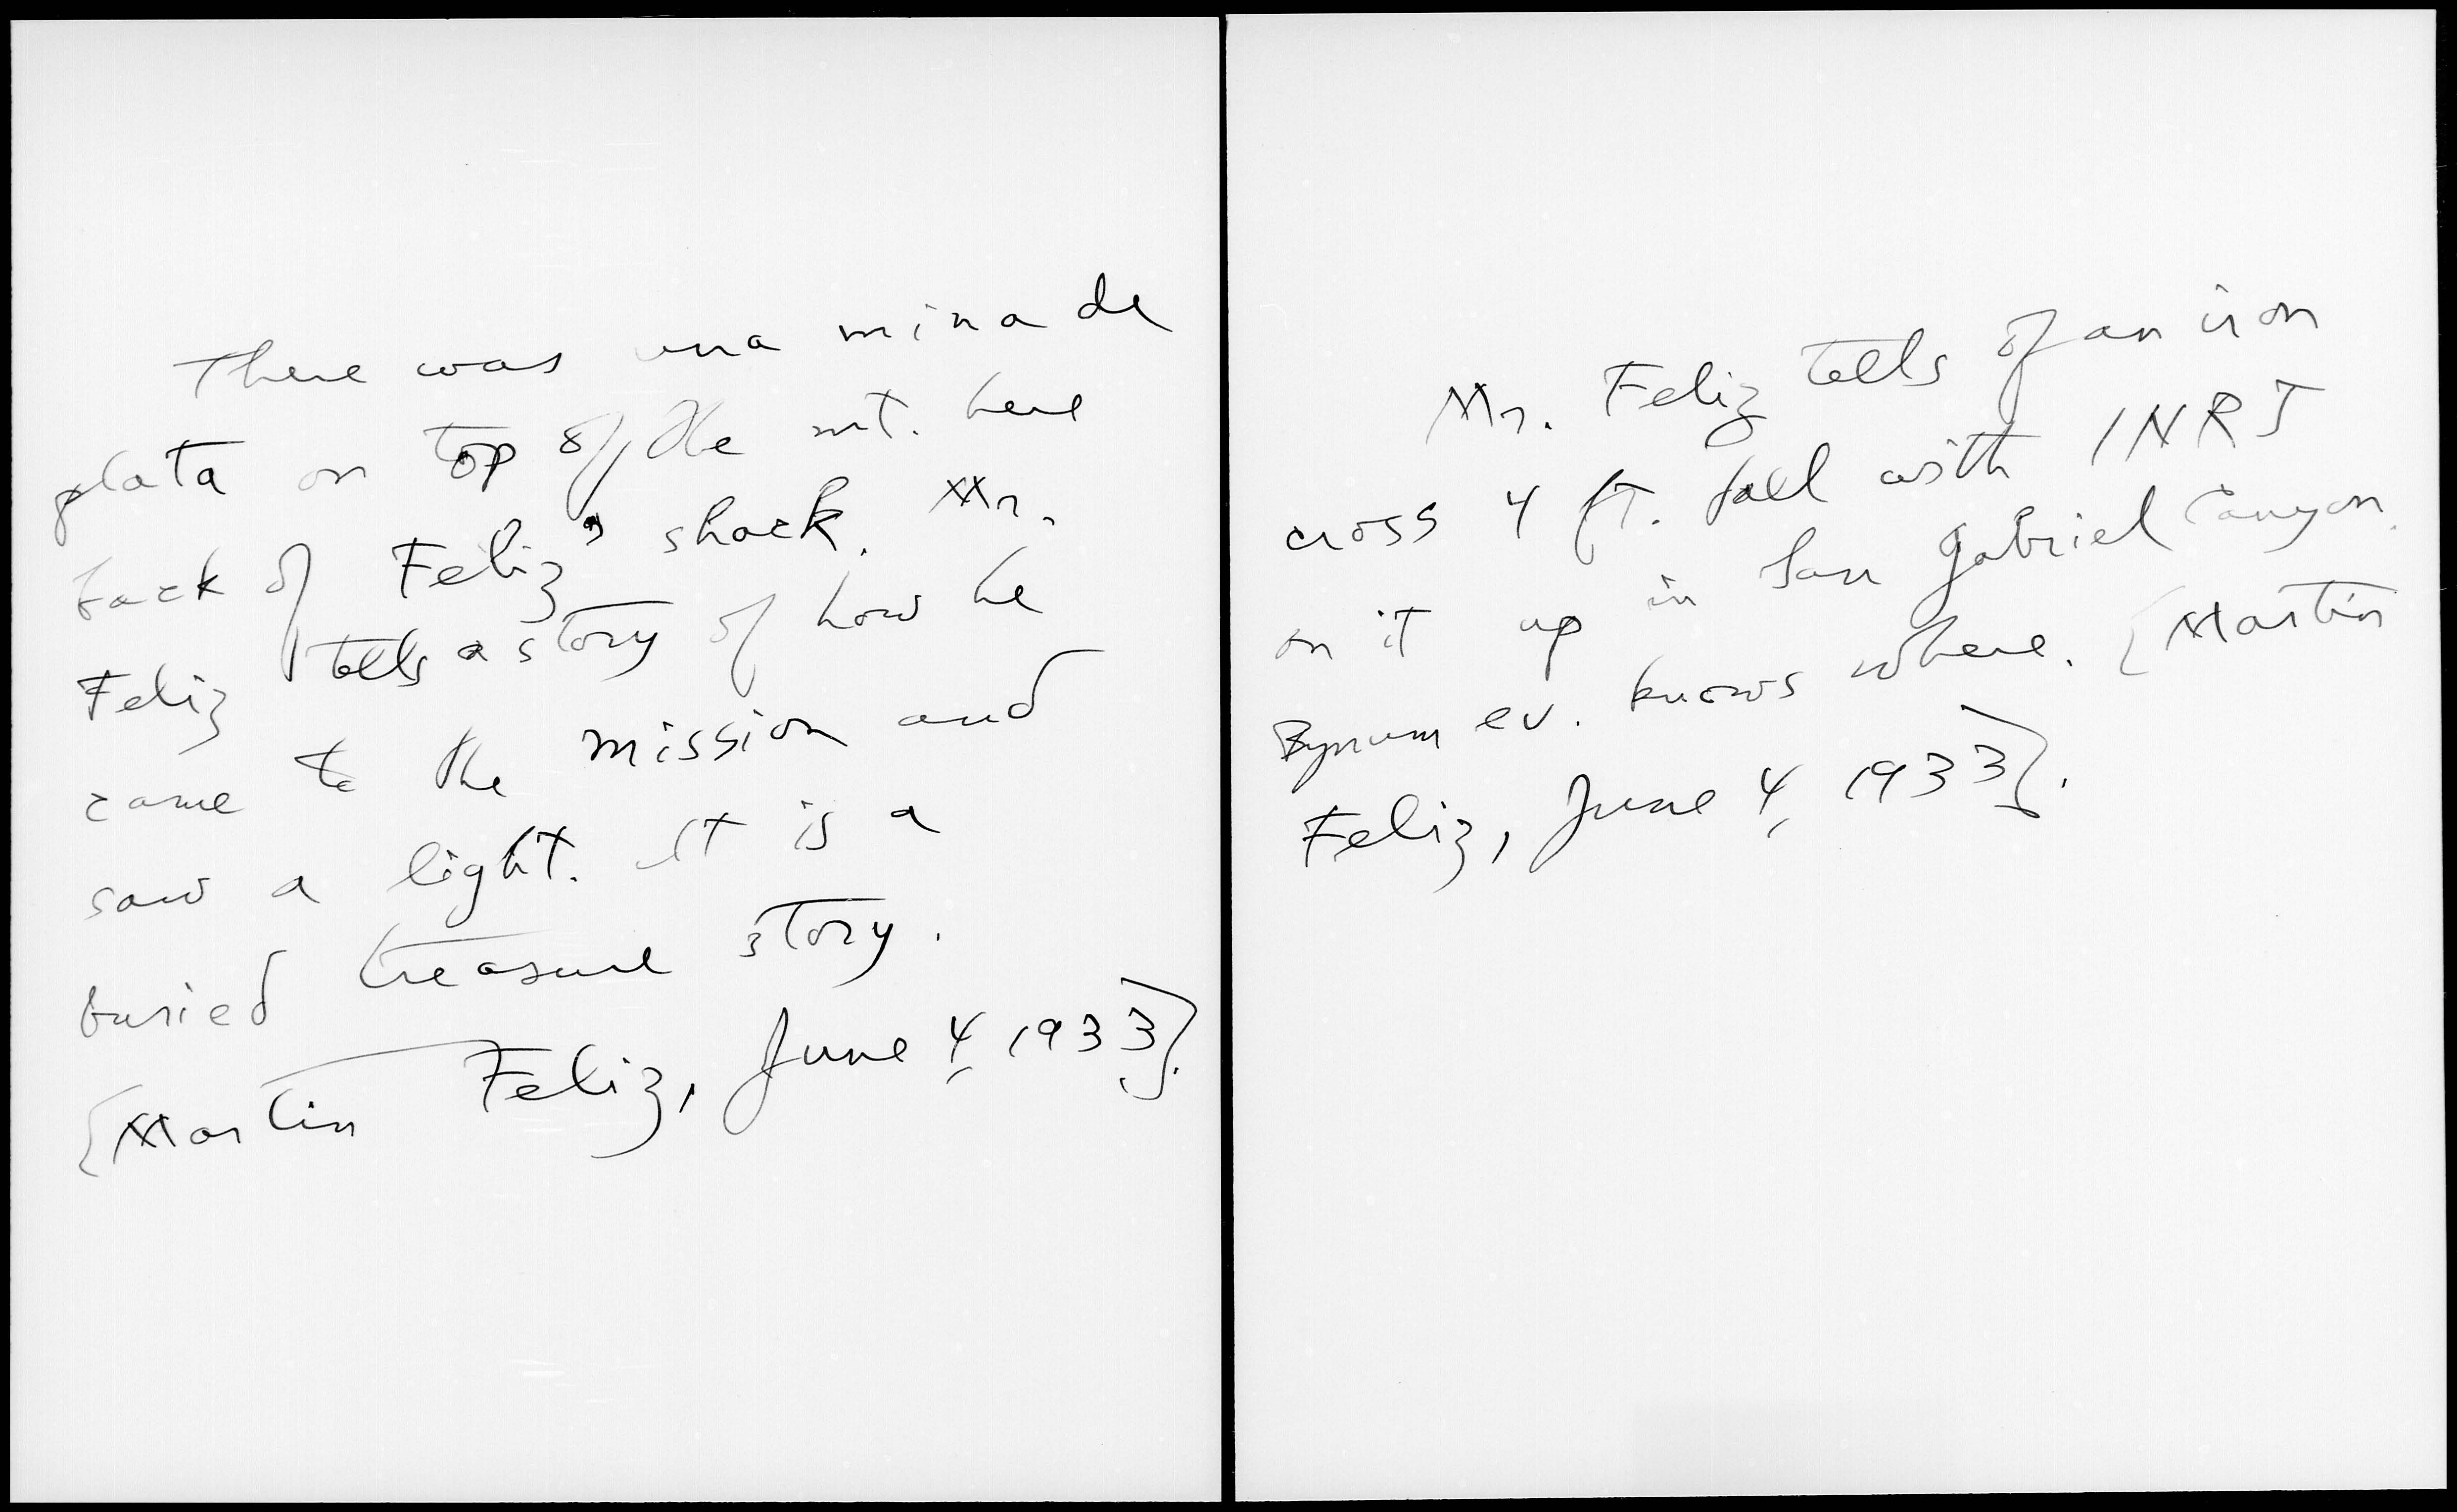 There was una mina de
plata on top of the mt. here
back of Feliz' shack. Mr.
Feliz tells a story of how he
came to the mission and
saw a light. It is a
buried treasure story.
{Martin Feliz, June 4, 1933}.
Mr. Feliz tells of an iron
cross 4 ft. tall with INRI
on it up in San Gabriel Canyon.
Bynum ev. knows where. {Martin
Feliz, June 4, 1933}.